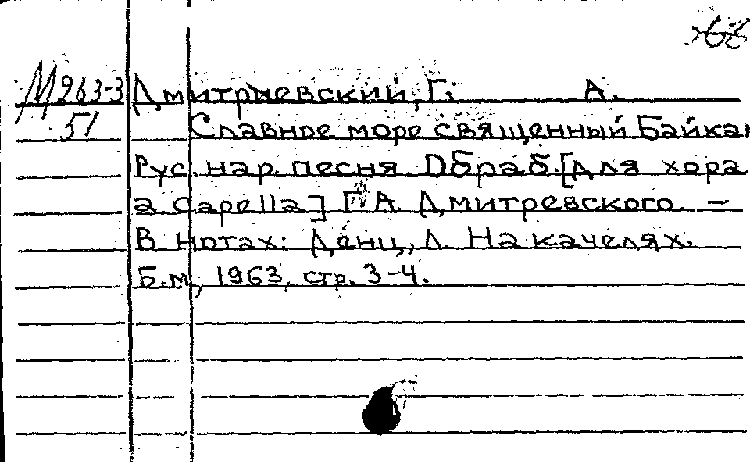 М963-3 Дмитриевский, Г. А.
51 Славное море священный Байкал
Рус. нар. песня. Обраб. [для хора
a capella] Г. А. Дмитревского. —
В нотах: Денц, Л. На качелях.
Б.м., 1963, стр. 3-4.